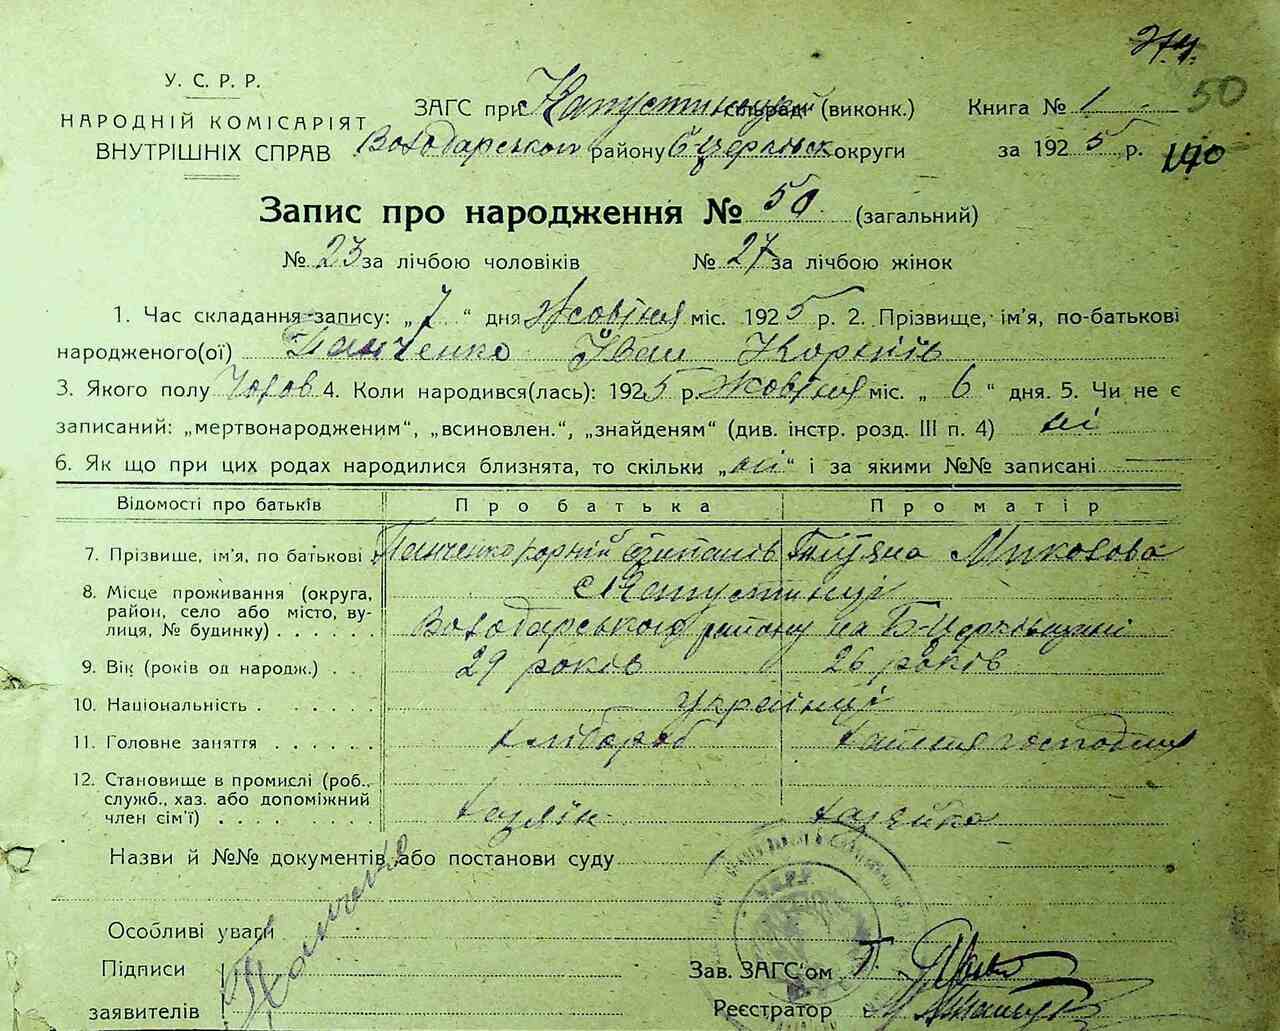 50
У. С. Р. Р.
НАРОДНІЙ КОМІСАРІЯТ
ВНУТРІШНІХ СПРАВ
ЗАГС при сільраді (виконк.) Книга № 1
Володарського району Б Церківск округи за 1925 р. 140
Запис про народження № 50 (загальний)
№ 23 за лічбою чоловіків № 27 за лічбою жінок
1. Час складання запису: „ 7 " дня Жовтня міс. 1925 р. 2. Прізвище, ім'я, по-батькові
народженого(ої) Панченко Іван Корніїв
3. Якого полу Чолов 4. Коли народився(лась): 1925 р. Жовтня міс. „ 6 " дня. 5. Чи не є
записаний: „мертвонародженим“, „всиновлен.“, „знайденям“ (див. інстр. розд. III п. 4) ні
6. Як що при цих родах народилися близнята, то скільки „ ні " і за якими №№ записані
Відомості про батьків Про батька Про матір
7. Прізвище, ім'я, по батькові Панченко Корній Степанів Тетяна Миколова
8. Місце проживання (округа, с Капустинці
район, село або місто, ву-
лиця, № будинку) Володарського району на Б-Церківщині
9. Вік (років од народж.) 29 років 26 років
10. Національність українці
11. Головне заняття хлібороб хатня господиня
12. Становище в промислі (роб.,
служб., хаз. або допоміжний
член сім'ї) хазяїн хазяйка
Назви й №№ документів, або постанови суду
Особливі уваги
Підписи Панченко Зав. ЗАГС'ом
заявителів Реєстратор
У.С.Р.Р.